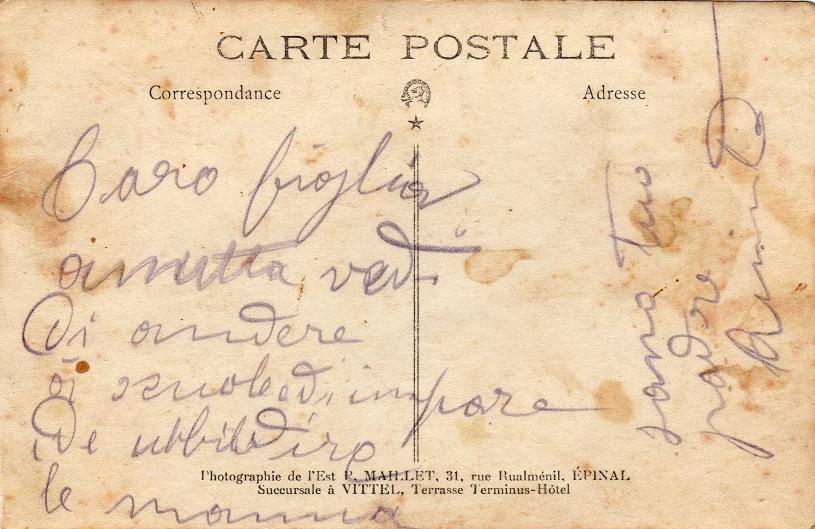 CARTE POSTALE
Correspondance
Adresse
Caro figlia
vedi
Di andere
di scuole di impare
De ubbidire
le mamma
sono tuo
padre
Photographie de l'Est P. MAILLET, 31, rue Rualménil, ÉPINAL
Succursale à VITTEL, Terrasse Terminus-Hôtel